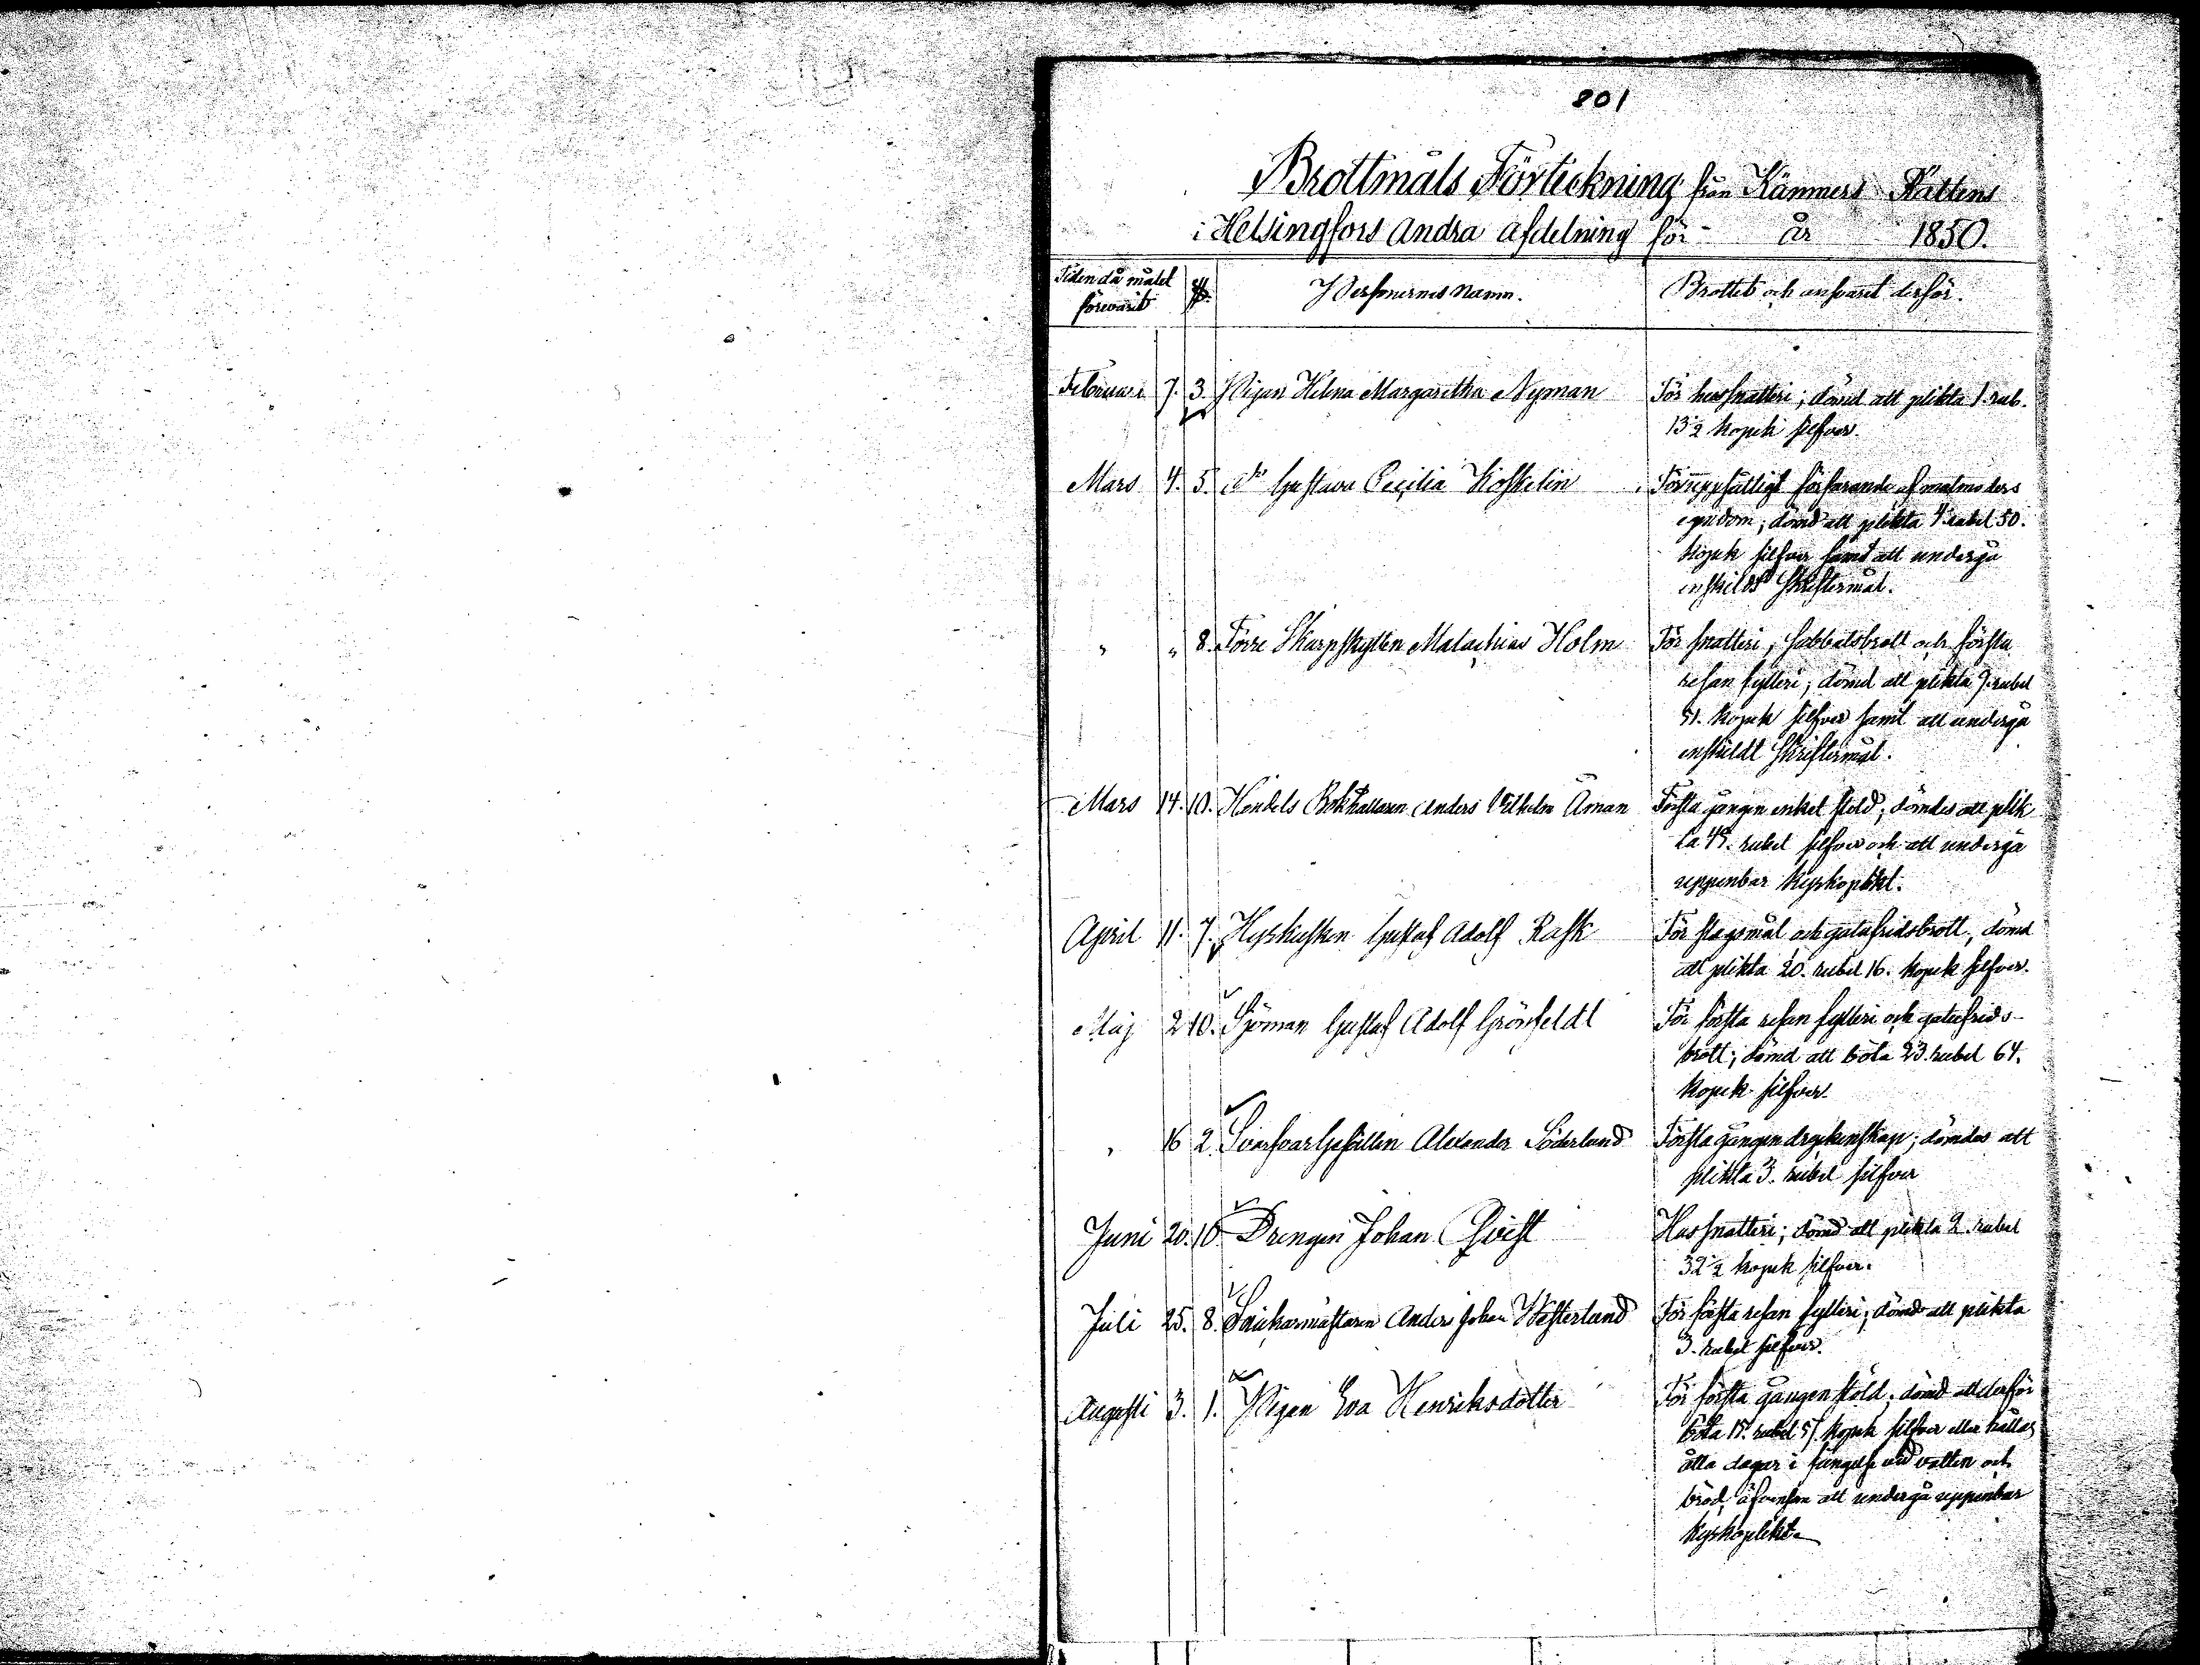 801
Brottmåls Förteckning från Kämners Rättens
i Helsingfors Andra afdelning för år 1850.
Tiden då målet förevarit
§§.
Personernes Namn.
Brottet och ansvaret derför.
Februari 7. 3. Pigan Helena Margaretha Nyman
För hussnatteri; dömd att plikta 1. rub.
13½ kopek silfver.
Mars 4. 5. do Gustava Cecilia Koskelin
För uppsåtligt förfarande af matmoders
egendom; dömd att plikta 4. rubel 50.
kopek silfver samt att undergå
enskildt skriftermål.
" " 8. Förre Skarpskytten Malachias Holm
För snatteri, sabbatsbrott och första
resan fylleri; dömd att plikta 9. rubel
51. kopek silfver samt att undergå
enskildt skriftermål.
Mars 14. 10. Handels Bokhållaren Anders Vilhelm Åman
Första gången enkel stöld; dömdes att plik
ta 45. rubel silfver och att undergå
uppenbar kyrkoplikt.
April 11. 7. Hyrkusken Gustaf Adolf Rask
För slagsmål och gatufridsbrott; dömd
att plikta 20. rubel 16. kopek silfver.
Maj 2 10. Sjöman Gustaf Adolf Grönfeldt
För första resan fylleri och gatufrids-
brott; dömd att böta 23. rubel 64.
kopek silfver.
" 16 2. Svarfvar Gesällen Alexander Söderlund
Första gången dryckenskap; dömdes att
plikta 3. rubel silfver
Juni 20. 10 Drengen Johan Qvist
Hussnatteri; dömd att plikta 2. rubel
32½ kopek silfver.
Juli 25. 8. Snickarmästaren Anders Johan Westerlund
För första resan fylleri; dömd att plikta
3. rubel silfver.
Augusti 3. 1. Pigan Eva Henriksdotter
För första gången stöld; dömd att derför
böta 17. rubel 57. kopek silfver eller hållas
åtta dagar i fängelse vid vatten och
bröd, äfvensom att undergå uppenbar
kyrkoplikt.